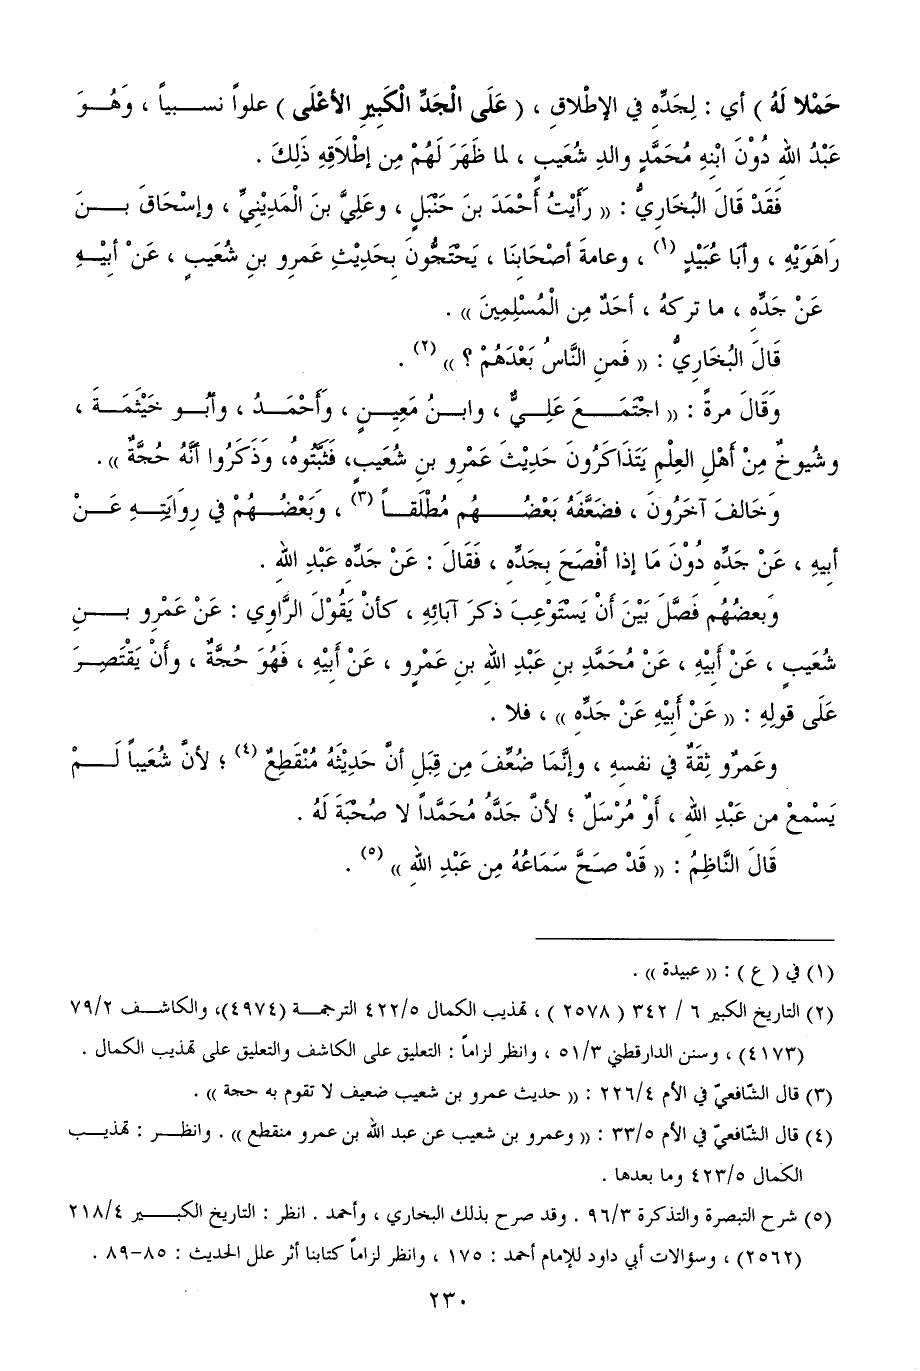 حَمْلا لَهُ ) أي : لِجَدِّه في الإِطْلاقِ ، ( عَلَى الْجَدِّ الْكَبِيرِ الأَعْلَى ) علواً نسبياً ، وَهُوَ
عَبْدُ اللهِ دُوْنَ ابْنِهِ مُحَمَّدٍ والدِ شُعَيبٍ ، لما ظَهَرَ لَهُمْ مِن إطْلاَقِهِ ذَلِكَ .
فَقَدْ قَالَ البُخَارِيُّ : « رَأَيْتُ أَحْمَدَ بنَ حَنْبَلٍ ، وعَلِيَّ بنَ الْمَدِيْنِيِّ ، وإسْحَاقَ بنَ
رَاهَوَيْهِ ، وأبَا عُبَيْدٍ (١) ، وعامةَ أصْحَابنَا ، يَحْتَجُّونَ بحَدِيْثِ عَمرِو بنِ شُعَيبٍ ، عَنْ أبيْهِ
عَنْ جَدِّه ، ما تركهُ ، أحَدٌ مِن الْمُسْلِمِينَ » .
قَالَ البُخَارِيُّ : « فَمنِ النَّاسُ بَعْدَهُمْ ؟ » (٢) .
وَقَالَ مرةً : « اجْتَمَعَ عَلِيٌّ ، وابنُ مَعِينٍ ، وأَحْمَدُ ، وأبُو خَيْثَمَةَ ،
وشُيوخٌ مِنْ أَهْلِ العِلْمِ يَتَذَاكَرُونَ حَدِيْثَ عَمْرِو بنِ شُعَيبٍ، فَثَبَّتُوهُ، وَذَكَرُوا أنَّهُ حُجَّةٌ » .
وَخَالفَ آخَرُونَ ، فضَعَّفَهُ بَعْضُهُم مُطْلَقاً (٣) ، وَبَعْضُهُمْ في رِوايَتِهِ عَنْ
أبيهِ ، عَنْ جَدِّه دُوْنَ مَا إذا أفْصَحَ بجَدِّه ، فَقَالَ : عَنْ جَدِّه عَبْدِ اللهِ .
وَبعضُهُم فَصَّلَ بَيْنَ أَنْ يَسْتَوْعِبَ ذكرَ آبائِهِ ، كأنْ يَقُوْلَ الرَّاوِي : عَنْ عَمْرِو بنِ
شُعَيبٍ ، عَنْ أَبِيْهِ ، عَنْ مُحَمَّدِ بنِ عَبْدِ اللهِ بنِ عَمْرٍو ، عَنْ أَبيْهِ ، فَهُوَ حُجَّةٌ ، وأَنْ يَقْتَصِرَ
عَلَى قولِهِ : « عَنْ أَبيْهِ عَنْ جَدِّه » ، فلا .
وعَمرٌو ثِقَةٌ في نفسِهِ ، وإنَّمَا ضُعِّفَ مِن قِبَلِ أنَّ حَدِيْثَهُ مُنْقَطِعٌ (٤) ؛ لأنَّ شُعَيباً لَمْ
يَسْمعْ من عَبْدِ اللهِ ، أَوْ مُرْسَلٌ ؛ لأنَّ جَدَّهُ مُحَمَّداً لا صُحْبَةَ لَهُ .
قَالَ النَّاظِمُ : « قَدْ صَحَّ سَمَاعُهُ مِن عَبْدِ اللهِ » (٥) .
(١) في ( ع ) : « عبيدة » .
(٢) التاريخ الكبير ٦ / ٣٤٢ ( ٢٥٧٨ ) ، تهذيب الكمال ٤٢٢/٥ الترجمة (٤٩٧٤)، والكاشف ٧٩/٢
(٤١٧٣) ، وسنن الدارقطني ٥١/٣ ، وانظر لزاماً : التعليق على الكاشف والتعليق على تهذيب الكمال .
(٣) قال الشّافعيّ في الأم ٢٢٦/٤ : « حديث عمرو بن شعيب ضعيف لا تقوم به حجة » .
(٤) قال الشّافعيّ في الأم ٣٣/٥ : « وعمرو بن شعيب عن عبد الله بن عمرو منقطع » . وانظر : تهذيب
الكمال ٤٢٣/٥ وما بعدها .
(٥) شرح التبصرة والتذكرة ٩٦/٣ . وقد صرح بذلك البخاري ، وأحمد . انظر : التاريخ الكبير ٢١٨/٤
(٢٥٦٢) ، وسؤالات أبي داود للإمام أحمد : ١٧٥ ، وانظر لزاماً كتابنا أثر علل الحديث : ٨٥-٨٩ .
٢٣٠